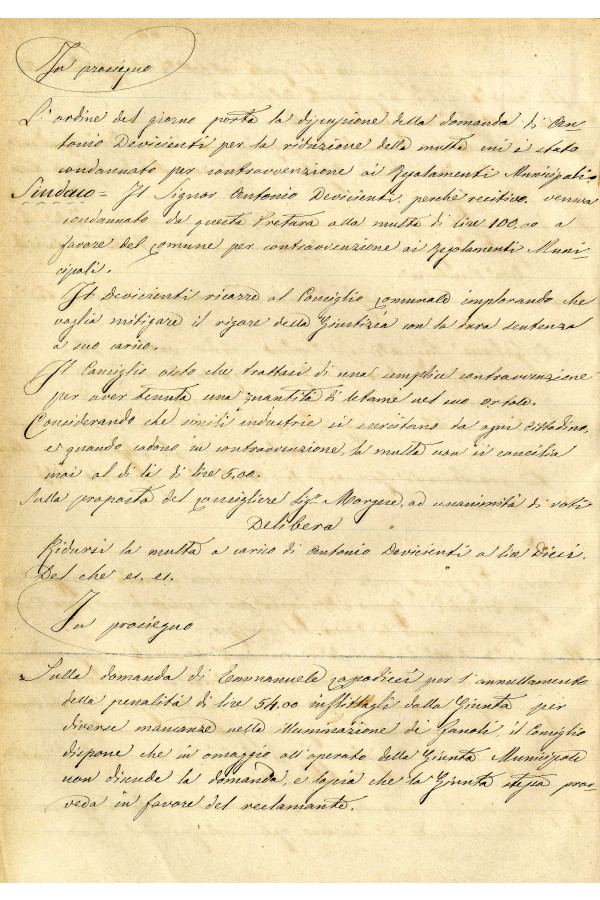 In prosieguo
L'ordine del giorno porta la discussione della domanda di An-
tonio Devicienti per la riduzione della multa cui è stato
condannato per contravvenzione ai Regolamenti Municipali=
Sindaco= Il Signor Antonio Devicienti, perché recitivo, veniva
condannato da questa Pretura alla multa di lire 100,00 a
favore del comune per contravvenzione ai Regolamenti Muni-
cipali.
Il Devicienti ricorre al Consiglio comunale implorando che
voglia mitigare il rigore della Giustizia con la sua sentenza
a suo carico.
Il Consiglio visto che trattasi di una semplice contravvenzione
per aver tenuta una quantità di letame nel suo ortale.
Considerando che simili industrie si esercitano da ogni cittadino,
e quando cadono in contravvenzione, la multa non si concilia
mai al di là di lire 5,00.
Sulla proposta del consigliere Sig.r Margese, ad unanimità di voti
Delibera
Ridursi la multa a carico di Antonio Devicienti a lire Dieci.
Del che es. es.
In prosieguo
Sulla domanda di Emmanuele Capodieci per l'annullamento
della penalità di lire 54.00 inflittagli dalla Giunta per
diverse mancanze nella illuminazione di fanali, il Consiglio
dispone che in omaggio all'operato della Giunta Municipale
non discude la domanda, e lascia che la Giunta stessa prov-
veda in favore del reclamante.